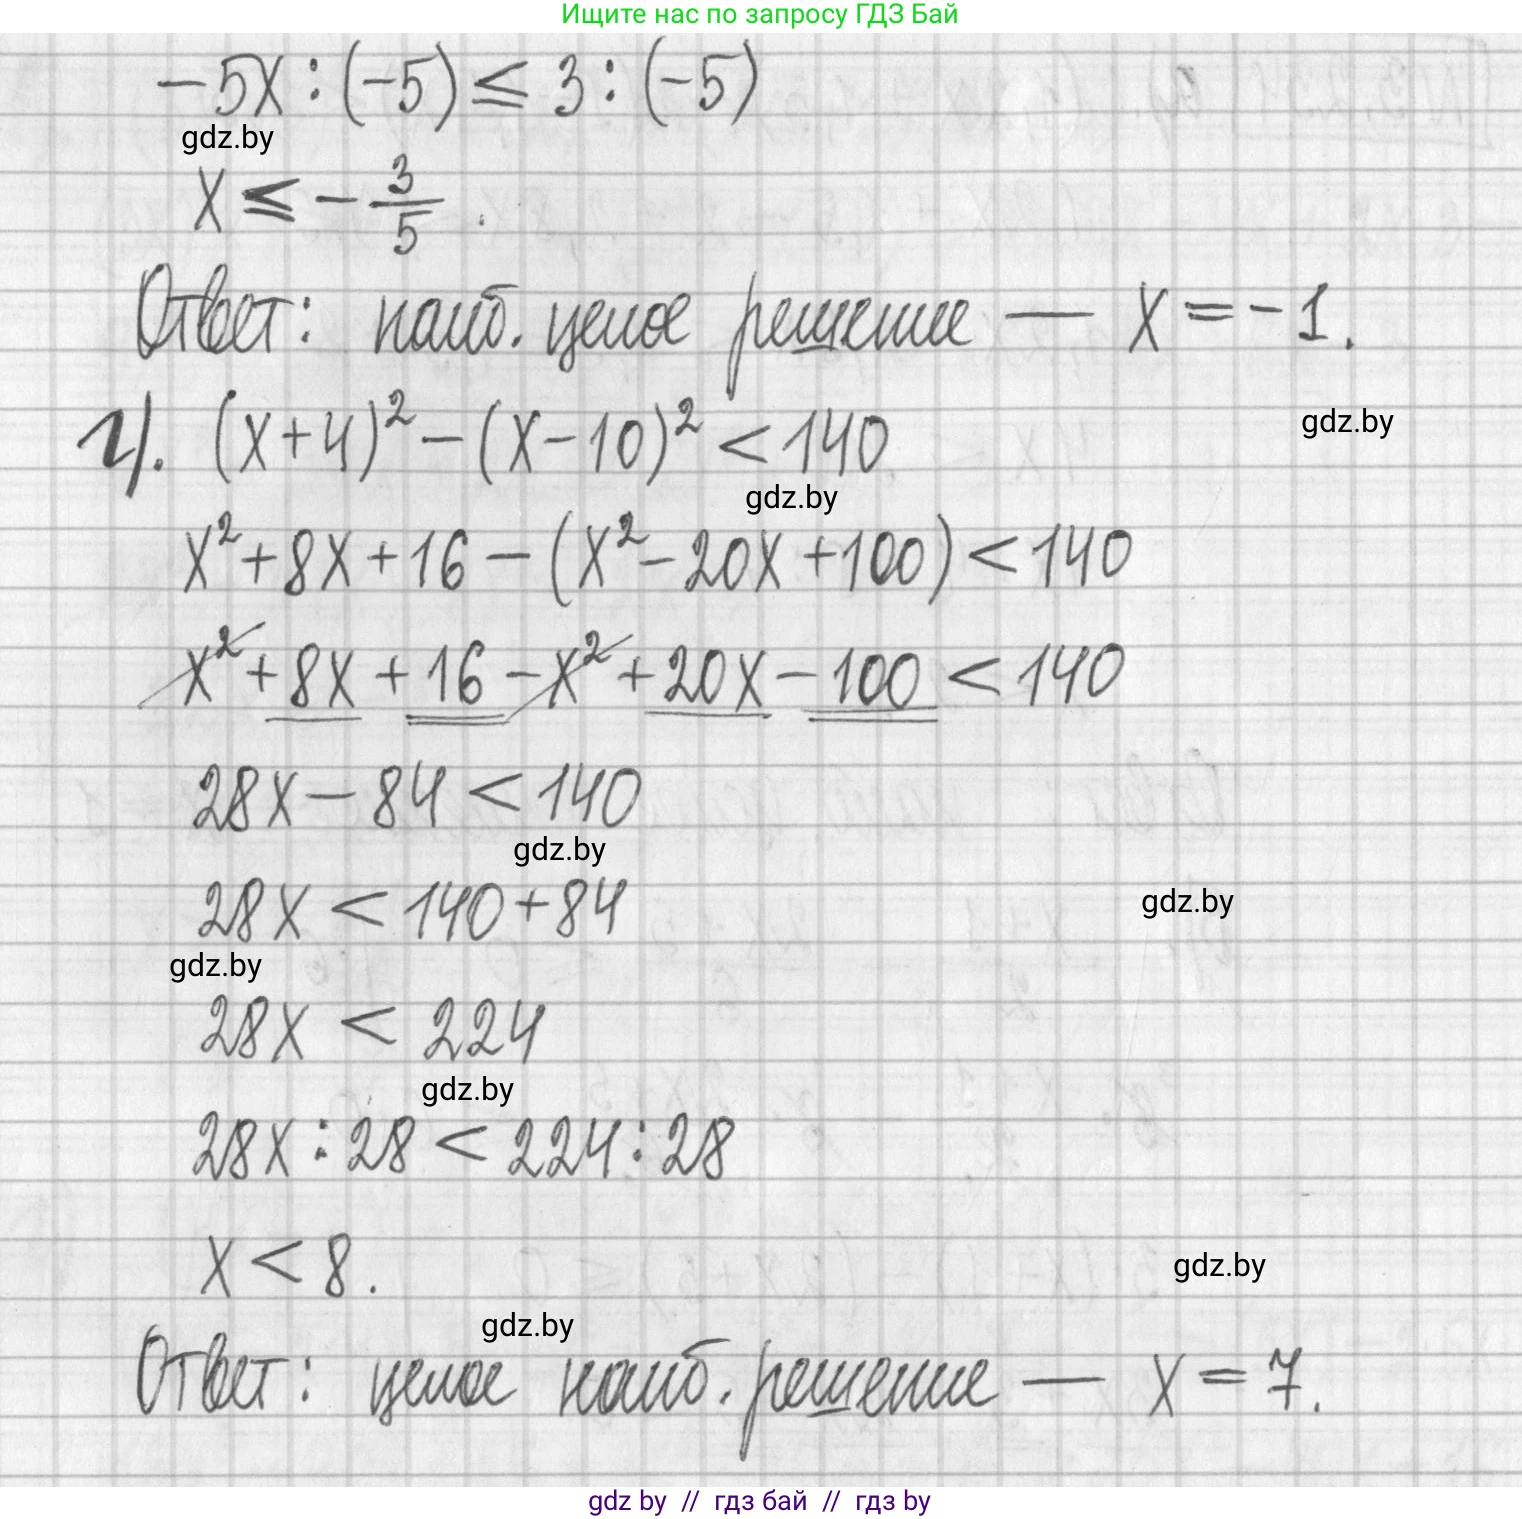 Ищите нас по запросу ГДЗ Бай
-5x : (-5) ≤ 3 : (-5)
gdz.by
x ≤ - 3/5.
Ответ: наиб. целое решение — x = -1.
г). (x+4)² - (x-10)² < 140
gdz.by
gdz.by
x² + 8x + 16 - (x² - 20x + 100) < 140
x² + 8x + 16 - x² + 20x - 100 < 140
28x - 84 < 140
gdz.by
28x < 140 + 84
gdz.by
gdz.by
28x < 224
gdz.by
28x : 28 < 224 : 28
x < 8.
gdz.by
gdz.by
Ответ: целое наиб. решение — x = 7.
gdz by // гдз бай // гдз by